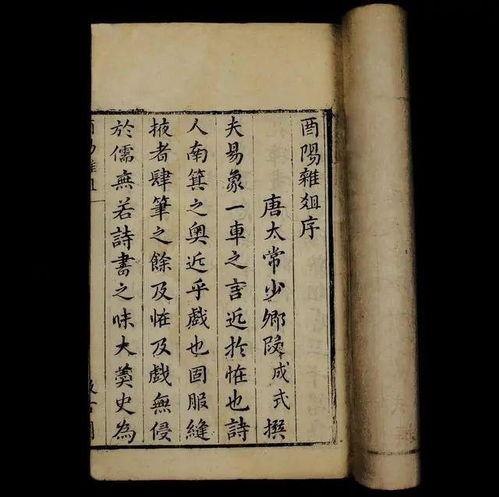 酉陽雜爼序
唐太常少卿段成式撰
夫易象一車之言近扵恠也詩
人南箕之奥近乎戲也固服縫
掖者肆筆之餘及恠及戲無侵
於儒無若詩書之味大羹史為